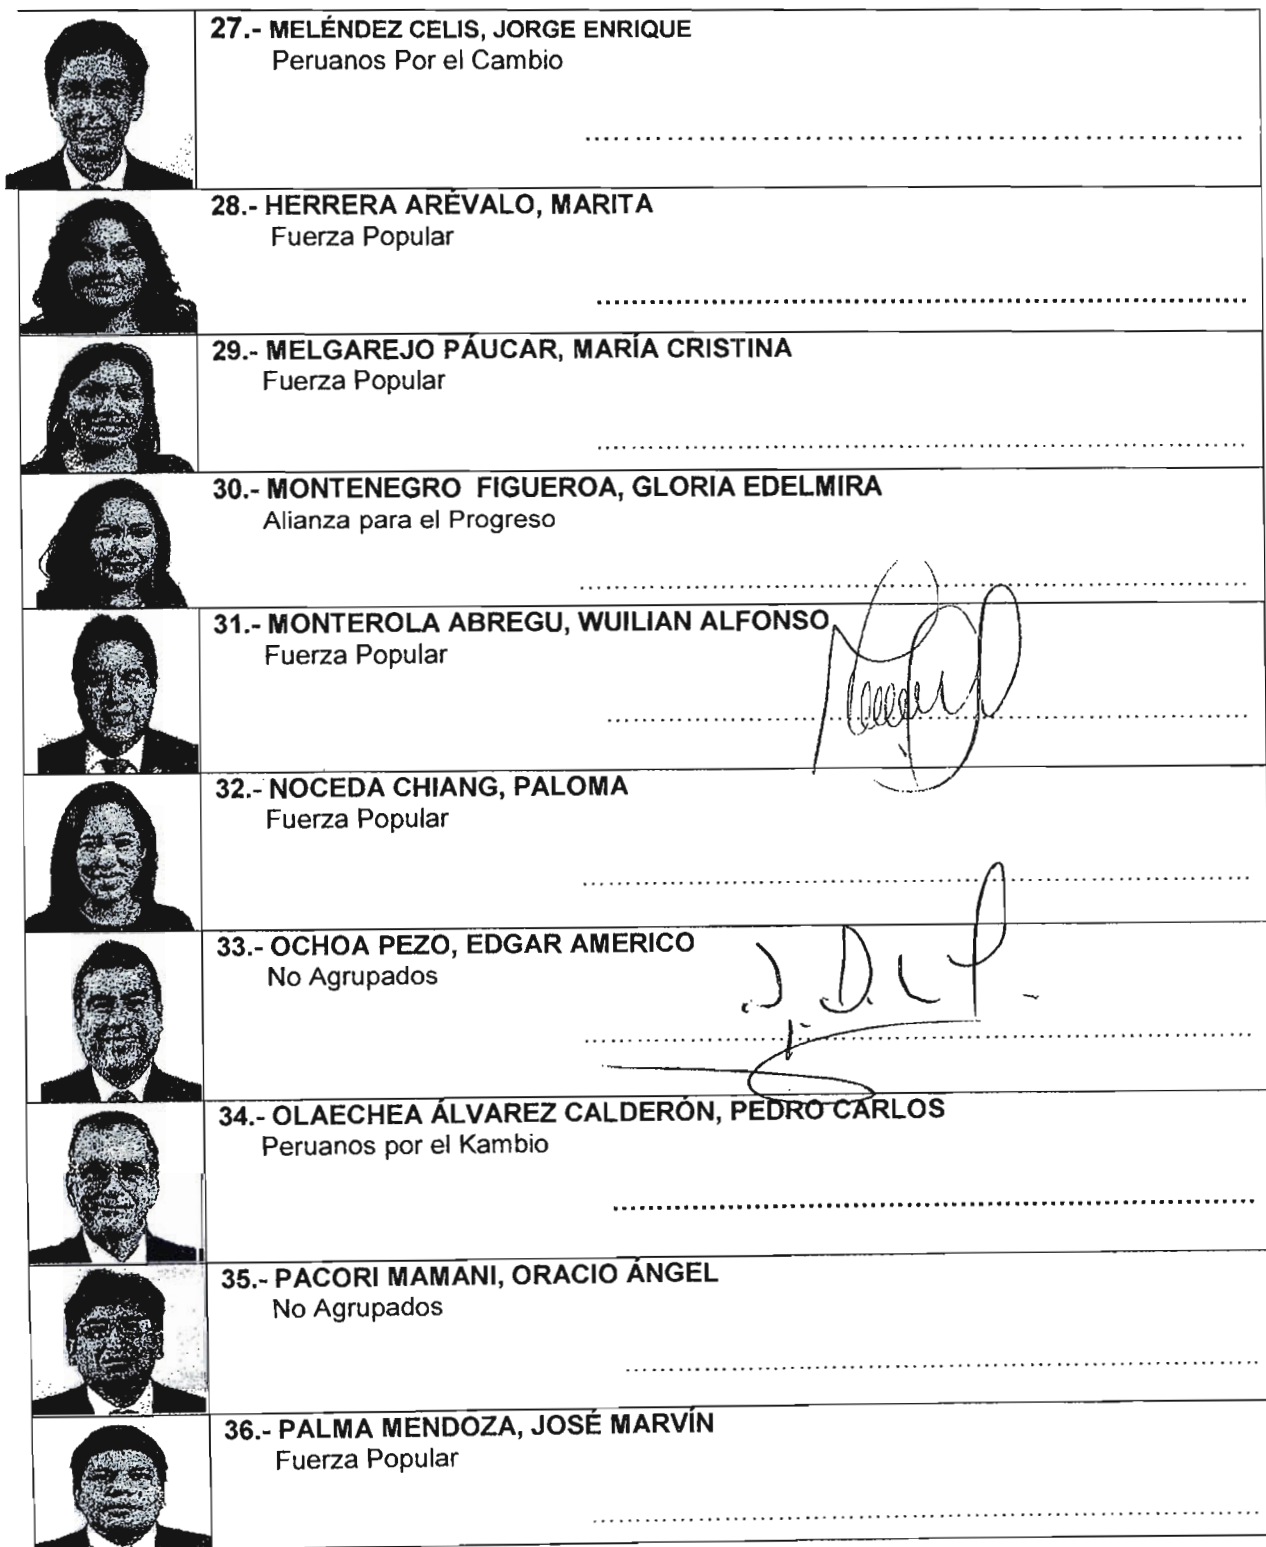 27.- MELÉNDEZ CELIS, JORGE ENRIQUE
Peruanos Por el Cambio
28.- HERRERA ARÉVALO, MARITA
Fuerza Popular
29.- MELGAREJO PÁUCAR, MARÍA CRISTINA
Fuerza Popular
30.- MONTENEGRO FIGUEROA, GLORIA EDELMIRA
Alianza para el Progreso
31.- MONTEROLA ABREGU, WUILIAN ALFONSO
Fuerza Popular
32.- NOCEDA CHIANG, PALOMA
Fuerza Popular
33.- OCHOA PEZO, EDGAR AMERICO
No Agrupados
34.- OLAECHEA ÁLVAREZ CALDERÓN, PEDRO CARLOS
Peruanos por el Kambio
35.- PACORI MAMANI, ORACIO ÁNGEL
No Agrupados
36.- PALMA MENDOZA, JOSÉ MARVÍN
Fuerza Popular